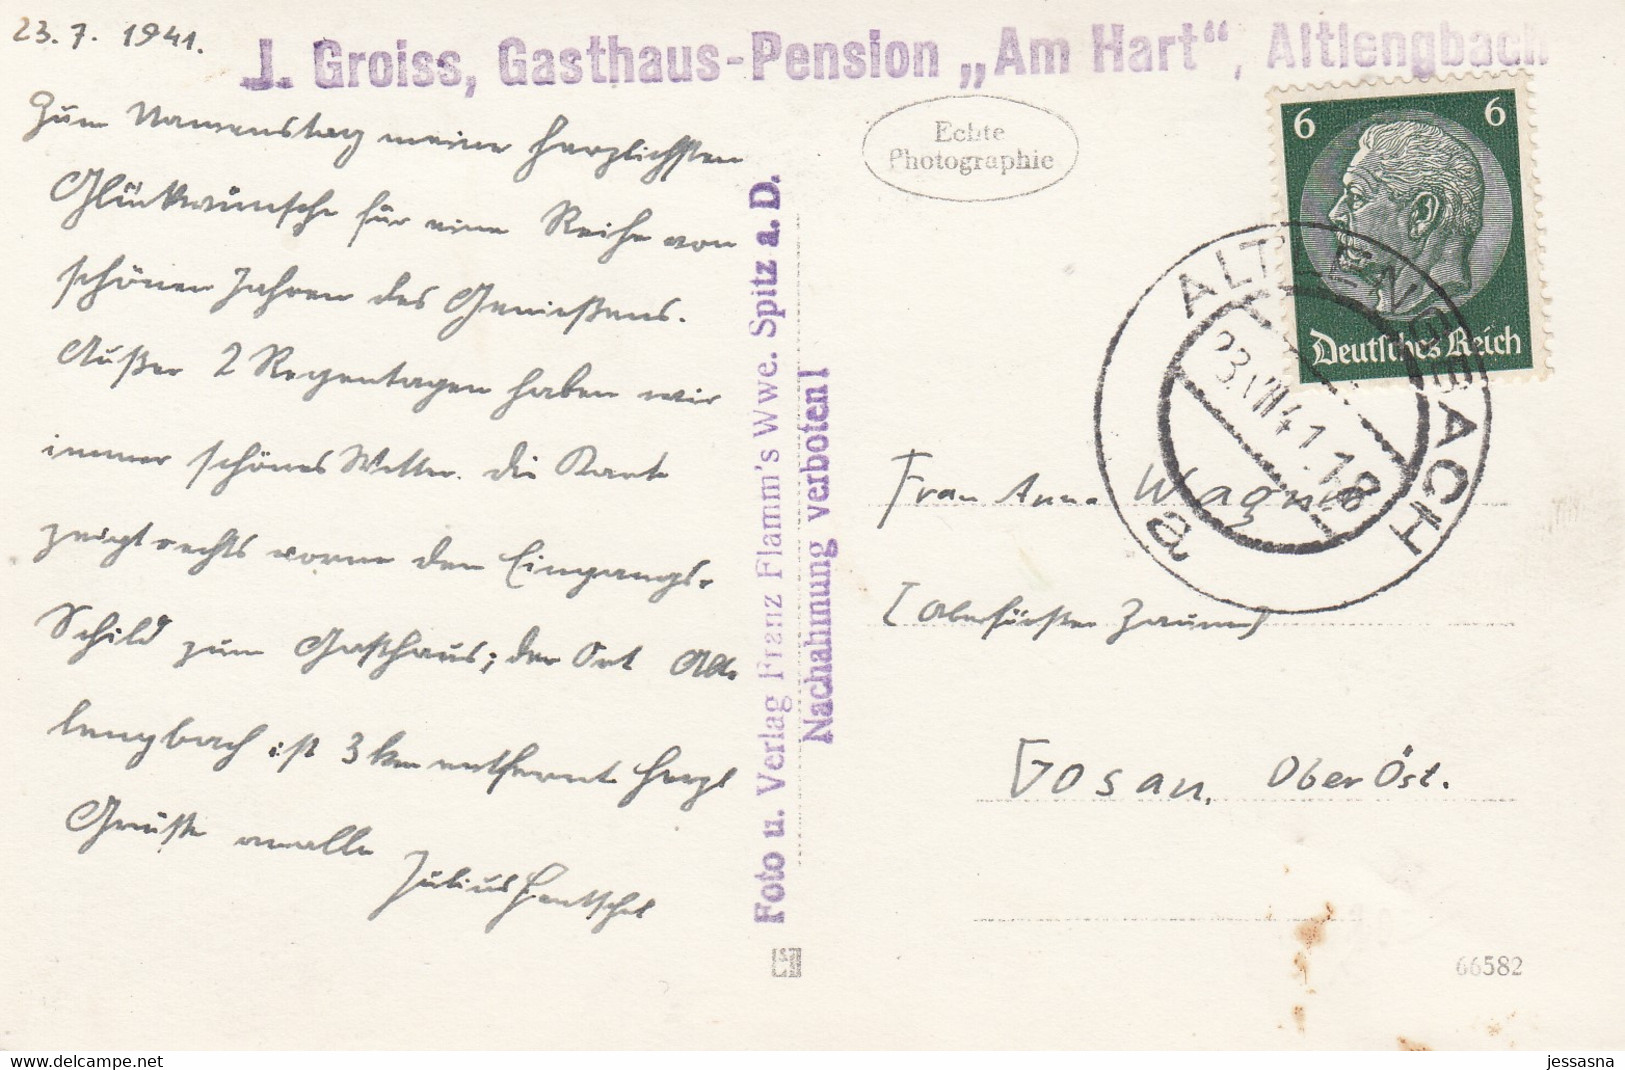 23.7. 1941.
J. Groiss, Gasthaus-Pension „Am Hart“, Altlengbach
Zum Namenstag meine herzlichsten
Glückwünsche für eine Reihe von
schönen Jahren des Genießens.
Außer 2 Regentagen haben wir
immer schönes Wetter. Die Karte
zeigt rechts vorne den Eingangs-
Schild zum Gasthaus; der Ort Alt-
lengbach ist 3 km entfernt herzl
Grüße an alle
Julius Hentschel
Foto u. Verlag Franz Flamm's Wwe. Spitz a. D.
Nachahmung verboten!
Echte
Photographie
6 6
Deutsches Reich
ALTLENGBACH
23.VII.41.18
a
Frau Anna Wagner
(Oberförster Zauner)
Gosau, Ober Öst.
66582
www.delcampe.net
jessasna